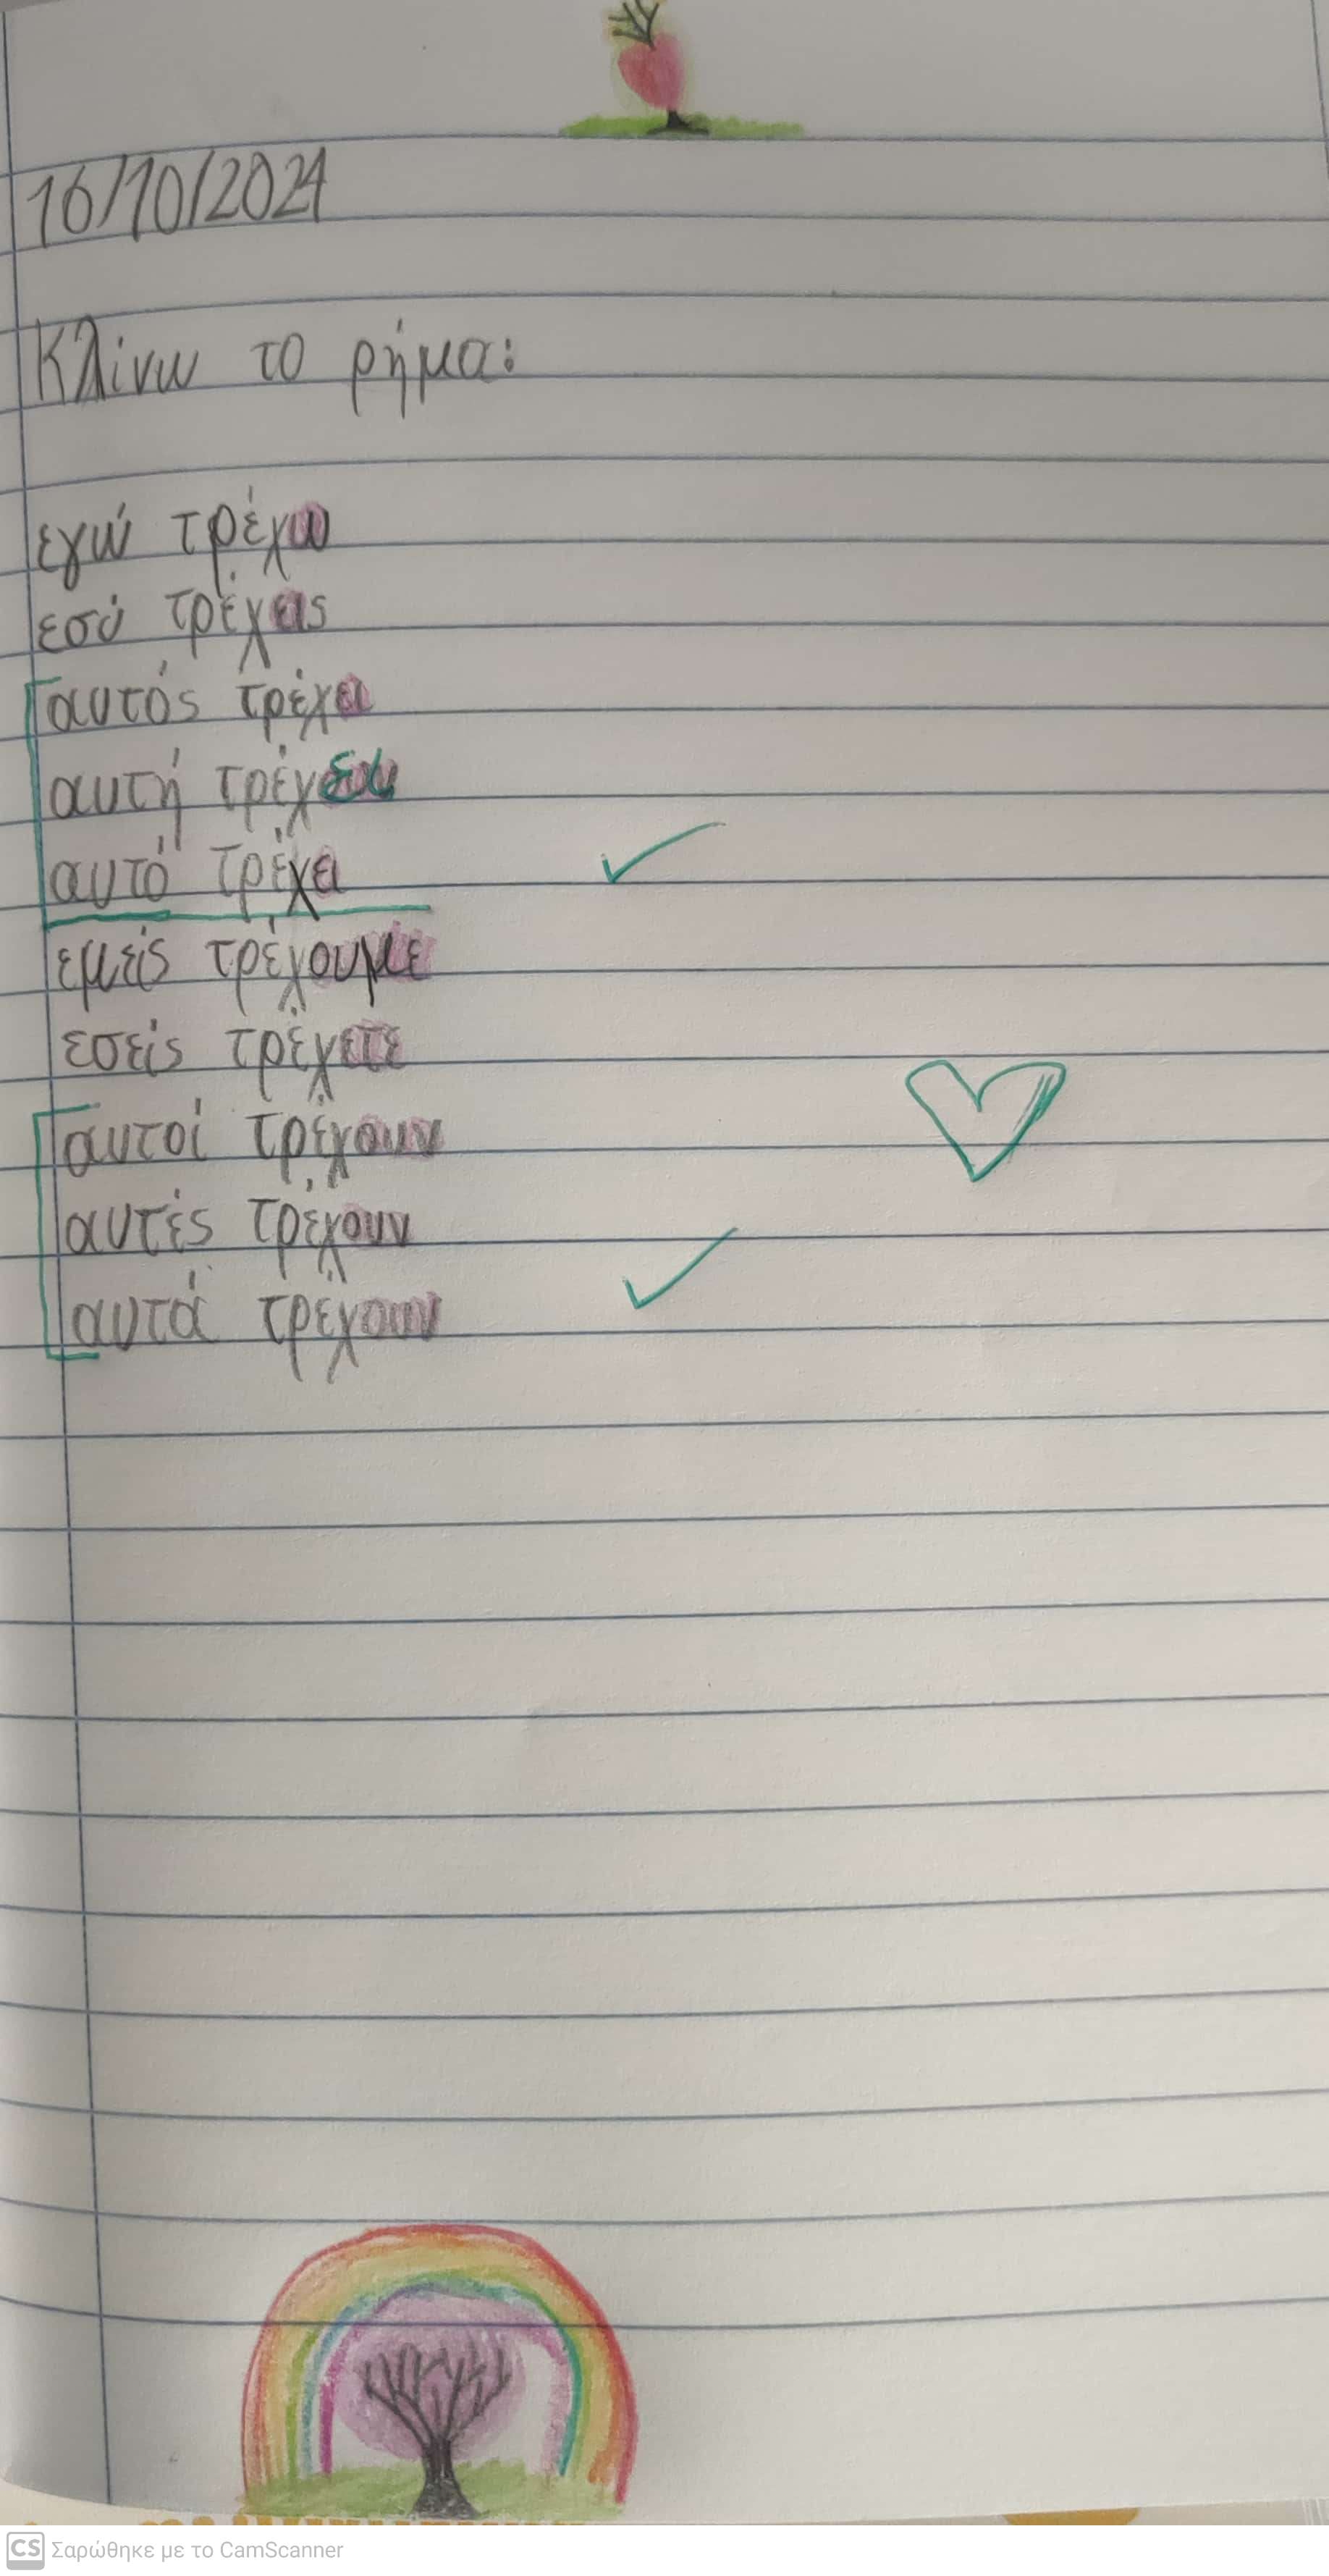 16/10/2024
Κλίνω το ρήμα:
εγώ τρέχω
εσύ τρέχεις
αυτός τρέχει
αυτή τρέχει
αυτό τρέχει
εμείς τρέχουμε
εσείς τρέχετε
αυτοί τρέχουν
αυτές τρέχουν
αυτά τρέχουν
CS Σαρώθηκε με το CamScanner